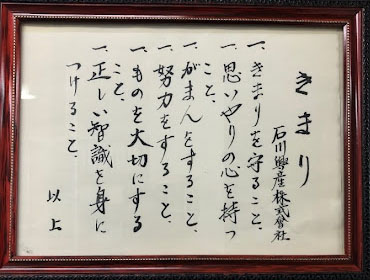 きまり
石川興産株式會社
一、きまりを守ること、
一、思いやりの心を持つ
こと、
一、がまんをすること、
一、努力をすること、
一、ものを大切にする
こと、
一、正しい智識を身に
つけること、
以上